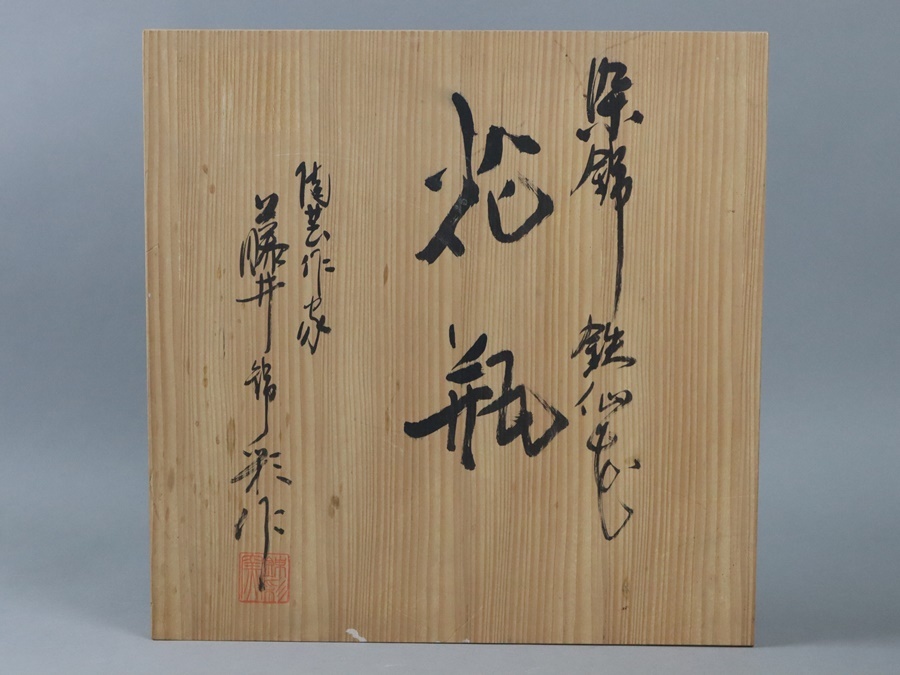 染錦 鉄仙花
花瓶
陶芸作家
藤井錦彩作